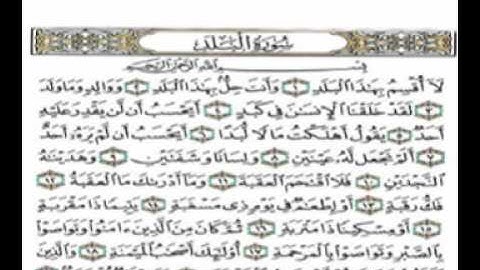 سُورَةُ الْبَلَدِ
بِسْمِ اللَّهِ الرَّحْمَٰنِ الرَّحِيمِ
لَا أُقْسِمُ بِهَٰذَا الْبَلَدِ ١ وَأَنتَ حِلٌّ بِهَٰذَا الْبَلَدِ ٢ وَوَالِدٍ وَمَا وَلَدَ
٣ لَقَدْ خَلَقْنَا الْإِنسَٰنَ فِي كَبَدٍ ٤ أَيَحْسَبُ أَن لَّن يَقْدِرَ عَلَيْهِ
أَحَدٌ ٥ يَقُولُ أَهْلَكْتُ مَالًا لُّبَدًا ٦ أَيَحْسَبُ أَن لَّمْ يَرَهُ أَحَدٌ
٧ أَلَمْ نَجْعَل لَّهُ عَيْنَيْنِ ٨ وَلِسَانًا وَشَفَتَيْنِ ٩ وَهَدَيْنَٰهُ
النَّجْدَيْنِ ١٠ فَلَا اقْتَحَمَ الْعَقَبَةَ ١١ وَمَا أَدْرَىٰكَ مَا الْعَقَبَةُ ١٢
فَكُّ رَقَبَةٍ ١٣ أَوْ إِطْعَٰمٌ فِي يَوْمٍ ذِي مَسْغَبَةٍ ١٤ يَتِيمًا ذَا مَقْرَبَةٍ
١٥ أَوْ مِسْكِينًا ذَا مَتْرَبَةٍ ١٦ ثُمَّ كَانَ مِنَ الَّذِينَ ءَامَنُوا وَتَوَاصَوْا
بِالصَّبْرِ وَتَوَاصَوْا بِالْمَرْحَمَةِ ١٧ أُولَٰئِكَ أَصْحَٰبُ الْمَيْمَنَةِ ١٨ وَالَّذِينَ